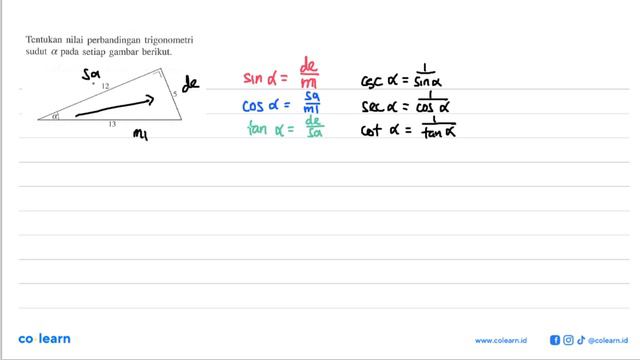 Tentukan nilai perbandingan trigonometri
sudut α pada setiap gambar berikut.
sa
12
de
5
α
13
mi
sin α = de/mi
cos α = sa/mi
tan α = de/sa
csc α = 1/sin α
sec α = 1/cos α
cot α = 1/tan α
co learn
www.colearn.id
@colearn.id